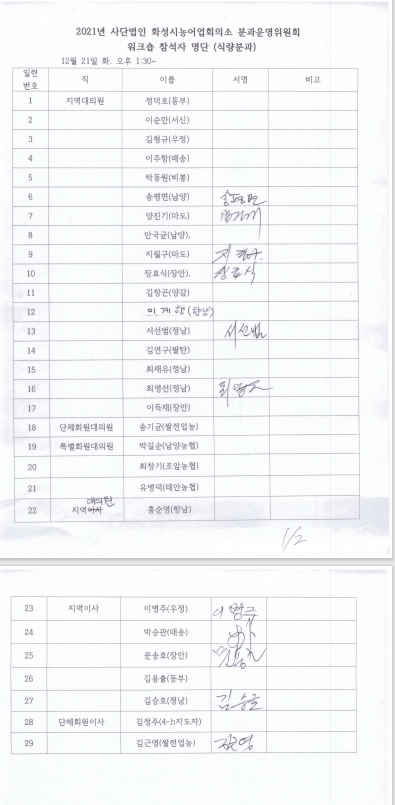 2021년 사단법인 화성시농어업회의소 분과운영위원회
워크숍 참석자 명단 (식량분과)
12월 21일 화. 오후 1:30~
일련번호 직 이름 서명 비고
1 지역대의원 정덕호(동부)
2 이순만(서신)
3 김형규(우정)
4 이주항(매송)
5 박동원(비봉)
6 송평면(남양) 송평면
7 양진기(마도) 양진기
8 안국균(남양),
9 지필구(마도) 지필구
10 장효식(장안), 장효식
11 김창곤(양감)
12 민계항(향남)
13 서선범(정남) 서선범
14 김연구(팔탄)
15 최재유(정남)
16 최영선(정남)
17 이득재(장안)
18 단체회원대의원 송기균(쌀전업농)
19 특별회원대의원 박길순(남양농협)
20 최창기(조암농협)
21 유병덕(태안농협)
22 지역이사 대의원 홍순영(향남)
1/2
23 지역이사 이병주(우정) 이병주
24 박승관(매송)
25 문송호(장안)
26 김용출(동부)
27 김승호(정남) 김승호
28 단체회원이사 김정주(4-h지도자)
29 김근영(쌀전업농) 김근영